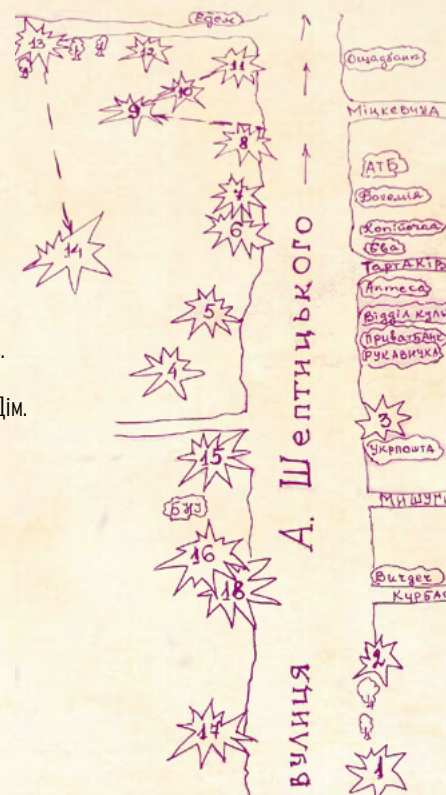 Едем
13
12
11
10
9
8
7
6
14
5
4
.
Дім.
15
БНІ
16
18
17
вулиця А. Шептицького
Ощадбанк
Міцкевича
АТБ
Богемія
Копійочка
Єва
Аптека
Відділ куль
ПриватБанк
РУКАВИЧКА
3
УКРПОШТА
Burger
2
1